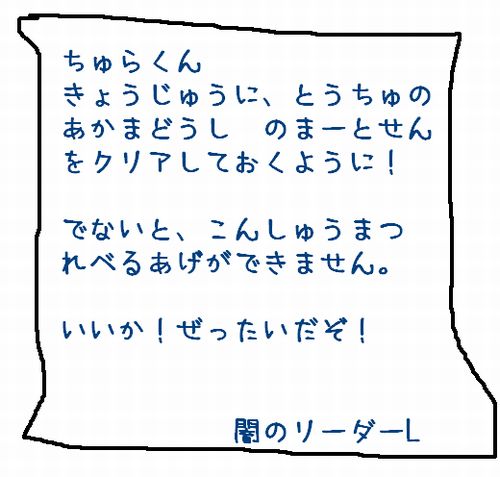 ちゅらくん
きょうじゅうに、とうちゅの
あかまどうし　のまーとせん
をクリアしておくように！
でないと、こんしゅうまつ
れべるあげができません。
いいか！ぜったいだぞ！
闇のリーダーL